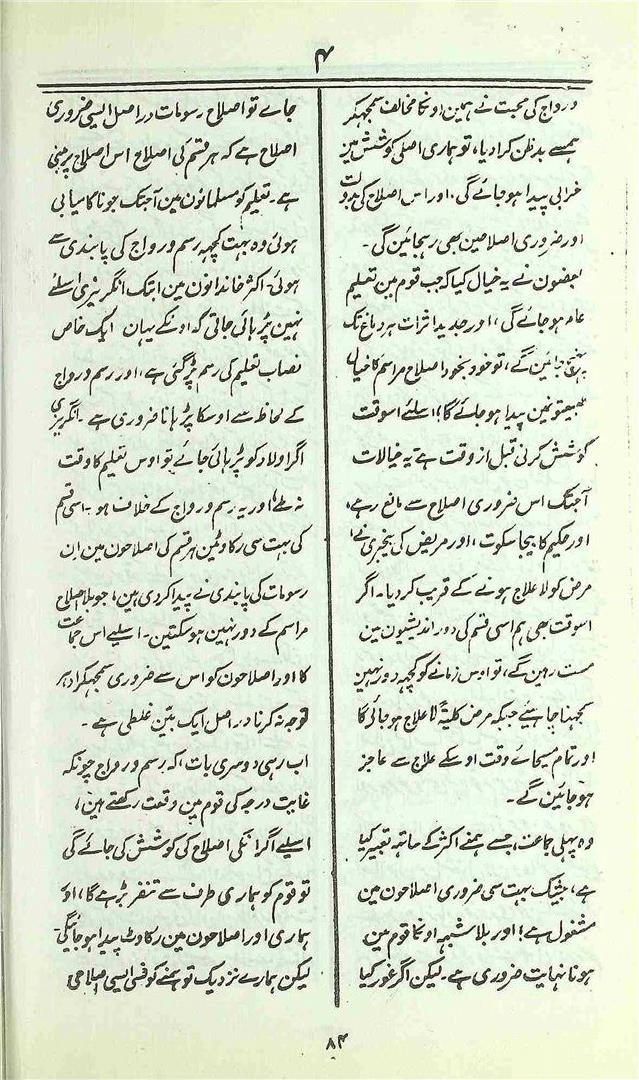 ۴
و رواج کی محبت نے ہمین اونکا مخالف سمجہکر
ہمسے بدظن کرادیا، تو ہماری اصلی کوشش مین
خرابی پیدا ہو جائے گی، اور اس اصلاح کی بدولت
اور ضروری اصلاحین بھی رہجائین گی۔
بعضون نے یہ خیال کیا کہ جب قوم مین تعلیم
عام ہو جائے گی، اور جدید اثرات ہر دماغ تک
پہنچ جائین گے، تو خود بخود اصلاح مراسم کا خیال
طبیعتونمین پیدا ہو جائے گا؛ اسلئے اسوقت
کوشش کرنی قبل از وقت ہے، یہ خیالات
آجتک اس ضروری اصلاح سے مانع رہے،
اور حکیم کا بیجا سکوت، اور مریض کی بیخبری نے،
مرض کو لاعلاج ہونے کے قریب کردیا۔ اگر
اسوقت بھی ہم اسی قسم کی دور اندیشیون مین
مست رہین گے، تو اوس زمانے کو کچہہ دور نہین
سمجہنا چاہیئے جبکہ مرض کلیۃً لا علاج ہو جائیگا
اور تمام مسیحائے وقت اوسکے علاج سے عاجز
ہو جائین گے۔
وہ پہلی جماعت، جسے ہمنے اکثر کے ساتہہ تعبیر کیا
ہے، بیشک بہت سی ضروری اصلاحون مین
مشغول ہے؛ اور بلا شبہہ اونکا قوم مین
ہونا نہایت ضروری ہے۔ لیکن اگر غور کیا
جاے تو اصلاح رسومات دراصل ایسی ضروری
اصلاح ہے کہ ہر قسم کی اصلاح اس اصلاح پر مبنی
ہے۔ تعلیم کو مسلمانون مین آجتک جو ناکامیابی
ہوئی وہ بہت کچہہ رسم و رواج کی پابندی سے
ہوئی۔ اکثر خاندانون مین ابتک انگریزی اسلئے
نہین پڑہائی جاتی کہ اونکے یہان ایک خاص
نصاب تعلیم کی رسم پڑگئی ہے، اور رسم و رواج
کے لحاظ سے اوسکا پڑہانا ضروری ہے۔ انگریزی
اگر اولاد کو پڑہائی جائے تو اوس تعلیم کا وقت
نہ ملے، اور یہ رسم و رواج کے خلاف ہو۔ اسی قسم
کی بہت سی رکاوٹین ہر قسم کی اصلاحون مین ان
رسومات کی پابندی نے پیدا کردی ہین، جو بلا اصلاح
مراسم کے دور نہین ہوسکتین۔ اسلیے اس جماعت
کا اور اصلاحون کو اس سے ضروری سمجہکر ادہر
توجہ نہ کرنا دراصل ایک بیّن غلطی ہے۔
اب رہی دوسری بات، کہ رسم و رواج چونکہ
غایت درجہ کی قوم مین وقعت رکھتے ہین،
اسلیے اگر انکی اصلاح کی کوشش کی جائے گی
تو قوم کو ہماری طرف سے تنفر بڑہے گا، اور
ہماری اور اصلاحون مین رکاوٹ پیدا ہو جائیگی۔
لیکن ہمارے نزدیک تو ہمنے کوئی ایسی اصلاحی
۸۴